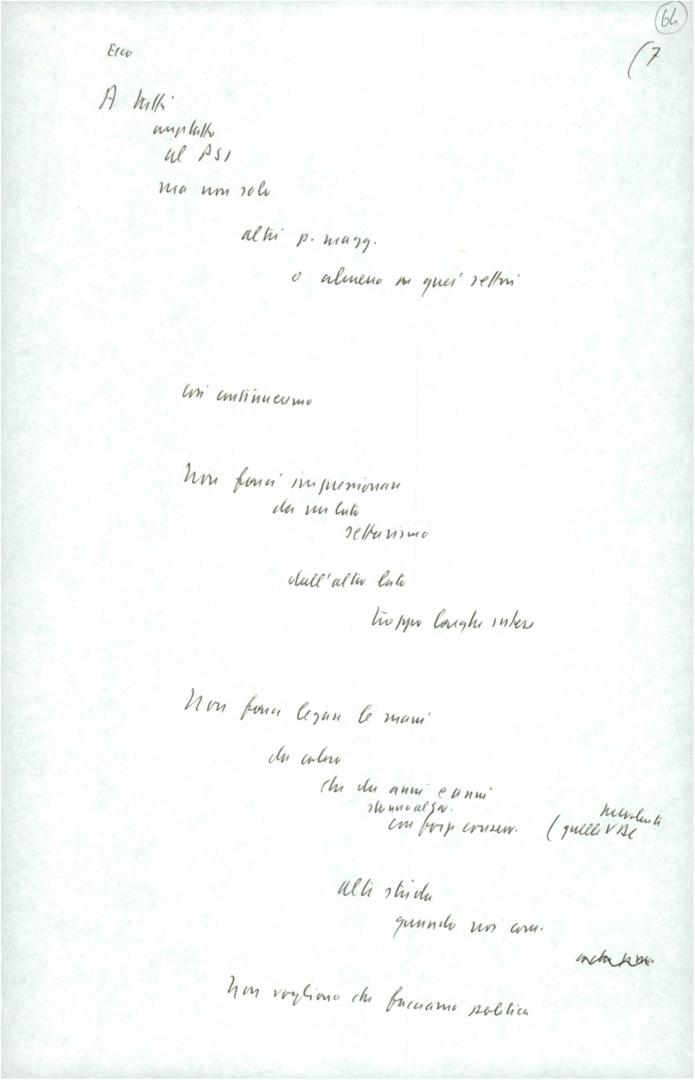 64
(7
Ecco
A tutti
anzitutto
al PSI
ma non solo
altri p. magg.
o almeno in quei settori
così continueremo
Non farci impressionare
da un lato
settarismo
dall'altro lato
troppo lunghe intese
Non farci legare le mani
da coloro
che da anni e anni
stanno al gov.
con forze conserv. (quelle
alte strida
quando noi com.
Non vogliono che facciamo politica